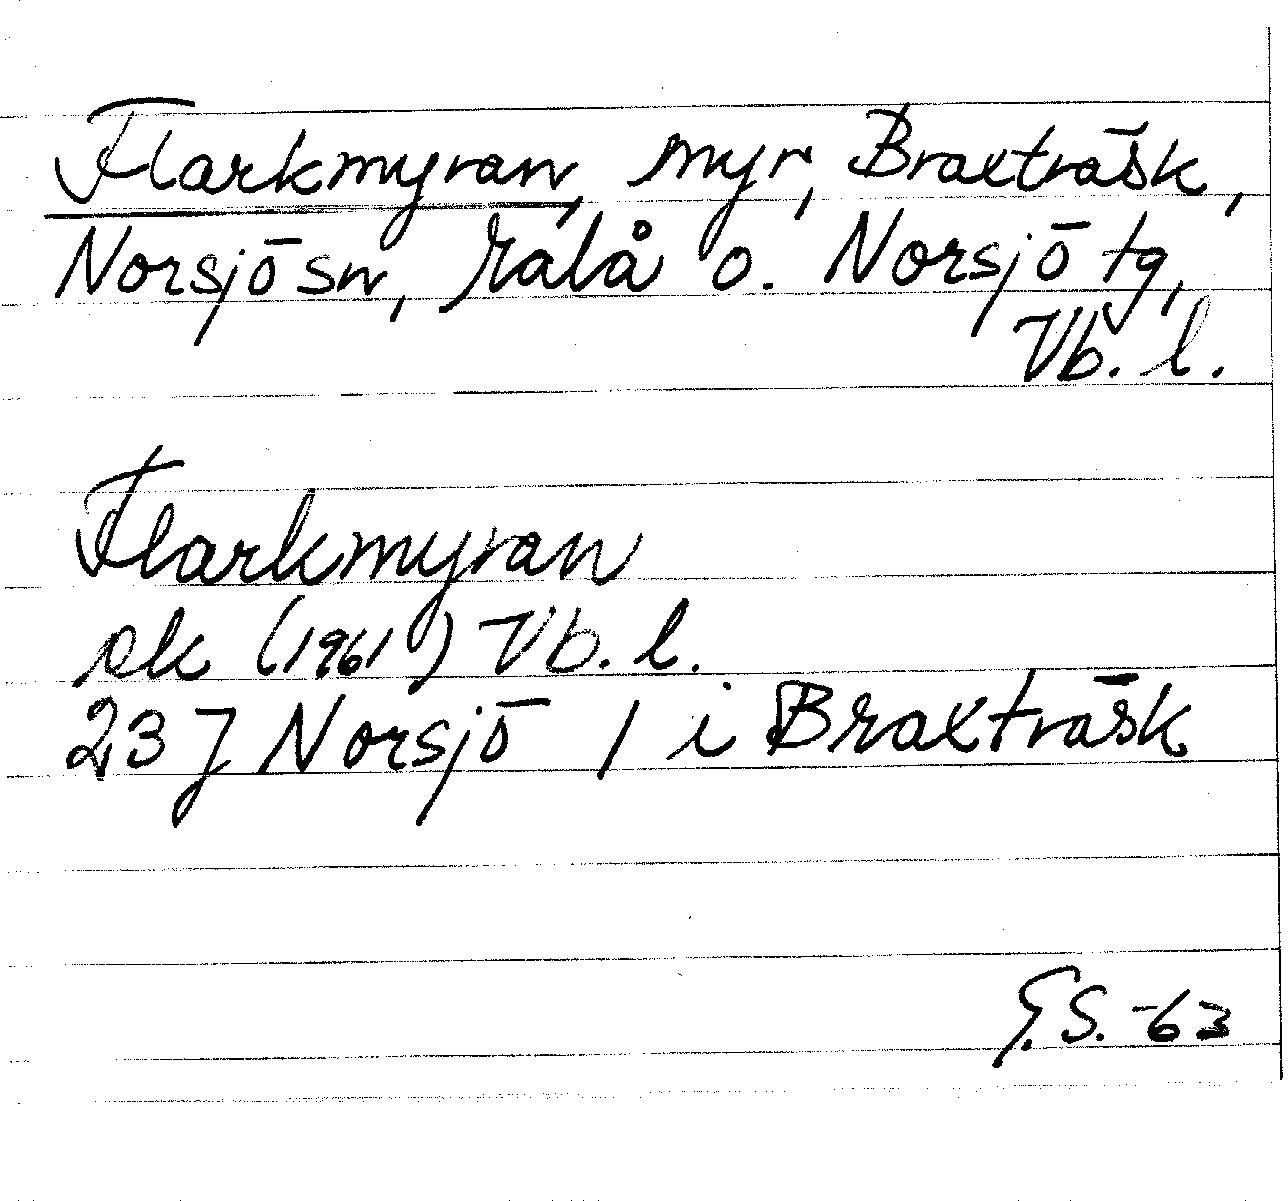 Flarkmyran, myr, Braxträsk,
Norsjö sn, Malå o. Norsjö tg,
Vb. l.
Flarkmyran
ek (1961) Vb. l.
23 J Norsjö / i Braxträsk
G.S. -63